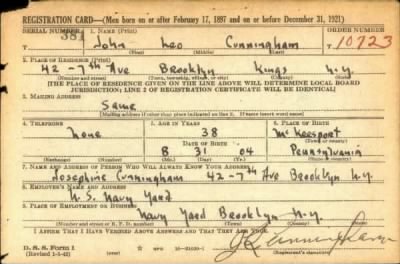 REGISTRATION CARD—(Men born on or after February 17, 1897 and on or before December 31, 1921)
SERIAL NUMBER 1. NAME (Print) ORDER NUMBER
381 John Leo Cunningham 10723
(First) (Middle) (Last)
2. PLACE OF RESIDENCE (Print)
42 - 7th Ave Brooklyn Kings N.Y.
(Number and street) (Town, township, village, or city) (County) (State)
[THE PLACE OF RESIDENCE GIVEN ON THE LINE ABOVE WILL DETERMINE LOCAL BOARD
JURISDICTION; LINE 2 OF REGISTRATION CERTIFICATE WILL BE IDENTICAL]
3. MAILING ADDRESS
Same
(Mailing address if other than place indicated on line 2. If same insert word same)
4. TELEPHONE 5. AGE IN YEARS 6. PLACE OF BIRTH
None 38 McKeesport
DATE OF BIRTH (Town or county)
8 31 04 Pennsylvania
(Exchange) (Number) (Mo.) (Day) (Yr.) (State or country)
7. NAME AND ADDRESS OF PERSON WHO WILL ALWAYS KNOW YOUR ADDRESS
Josephine Cunningham 42-7th Ave Brooklyn N.Y.
8. EMPLOYER'S NAME AND ADDRESS
U.S. Navy Yard
9. PLACE OF EMPLOYMENT OR BUSINESS
Navy Yard Brooklyn N.Y.
(Number and street or R. F. D. number) (Town) (County) (State)
I AFFIRM THAT I HAVE VERIFIED ABOVE ANSWERS AND THAT THEY ARE TRUE.
D. S. S. Form 1
(Revised 1-1-42) (over)